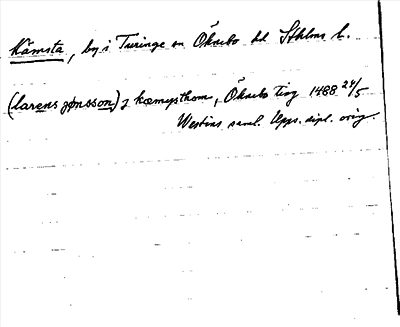 Kämsta, by i Turinge sn Öknebo hd Sthlms l.
(larens jønsson) j kæmysthom, Öknebo ting 1488 24/5
Westins saml. Upps. dipl. orig.